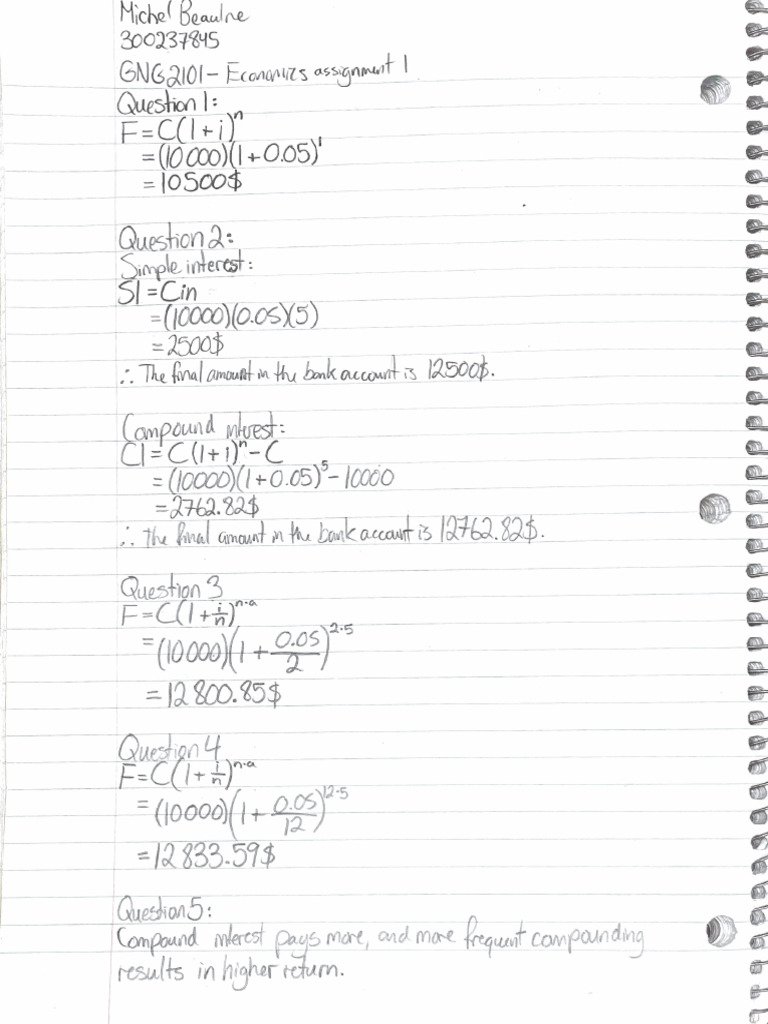 Michel Beaulne
300237845
GNG2101 - Economics assignment 1
Question 1:
F = C(1+i)^n
= (10000)(1+0.05)^1
= 10500$
Question 2:
Simple interest:
SI = Cin
= (10000)(0.05)(5)
= 2500$
∴ The final amount in the bank account is 12500$.
Compound interest:
CI = C(1+i)^n - C
= (10000)(1+0.05)^5 - 10000
= 2762.82$
∴ The final amount in the bank account is 12762.82$.
Question 3
F = C(1+i/n)^n·a
= (10000)(1+0.05/2)^2·5
= 12800.85$
Question 4
F = C(1+i/n)^n·a
= (10000)(1+0.05/12)^12·5
= 12833.59$
Question 5:
Compound interest pays more, and more frequent compounding
results in higher return.